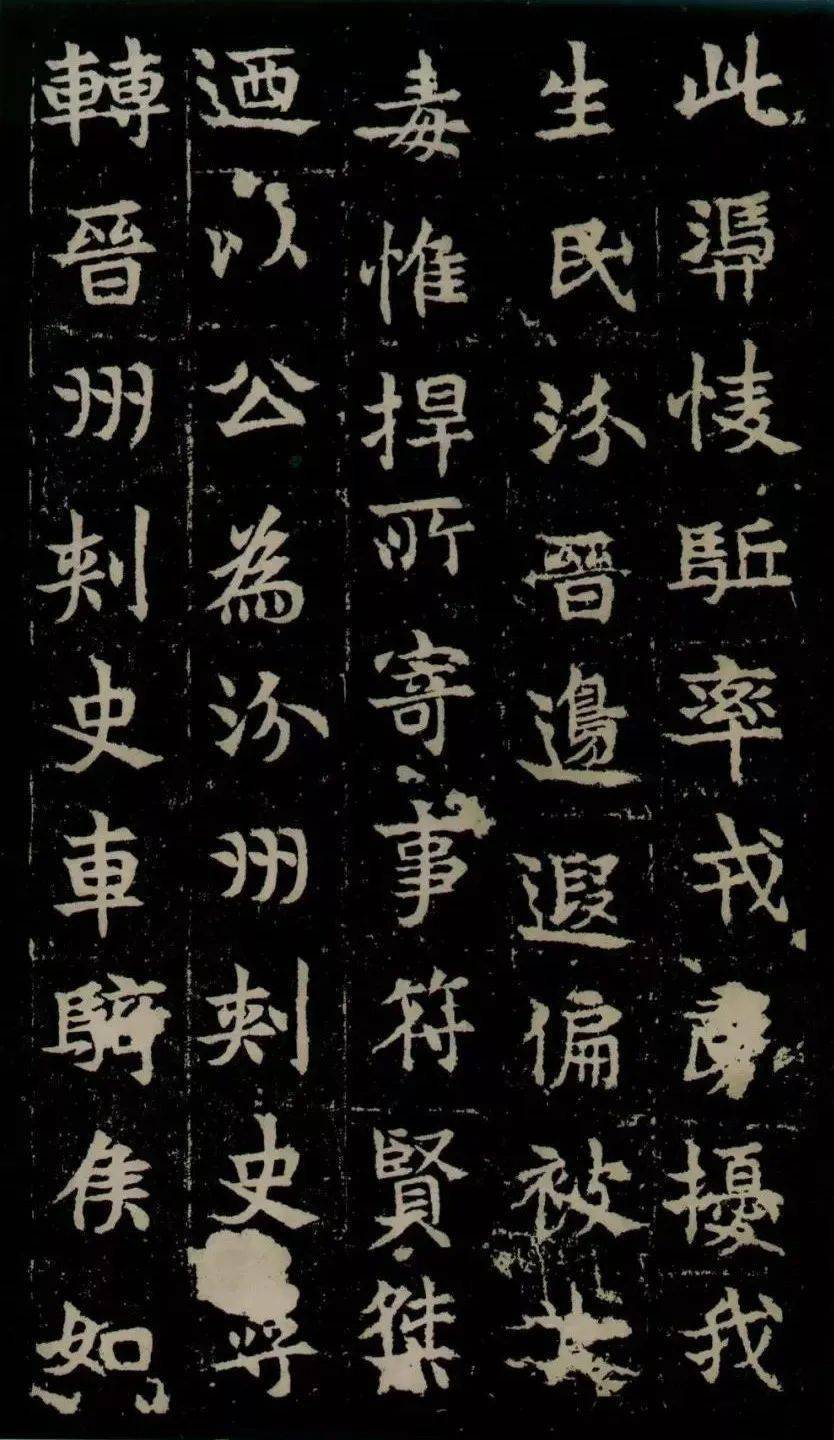 此㥄駈率戎擾我
生民汾晉邊遐偏被其
毒惟捍所寄事符賢桀
迺以公為汾州刺史尋
轉晉州刺史車騎侯如